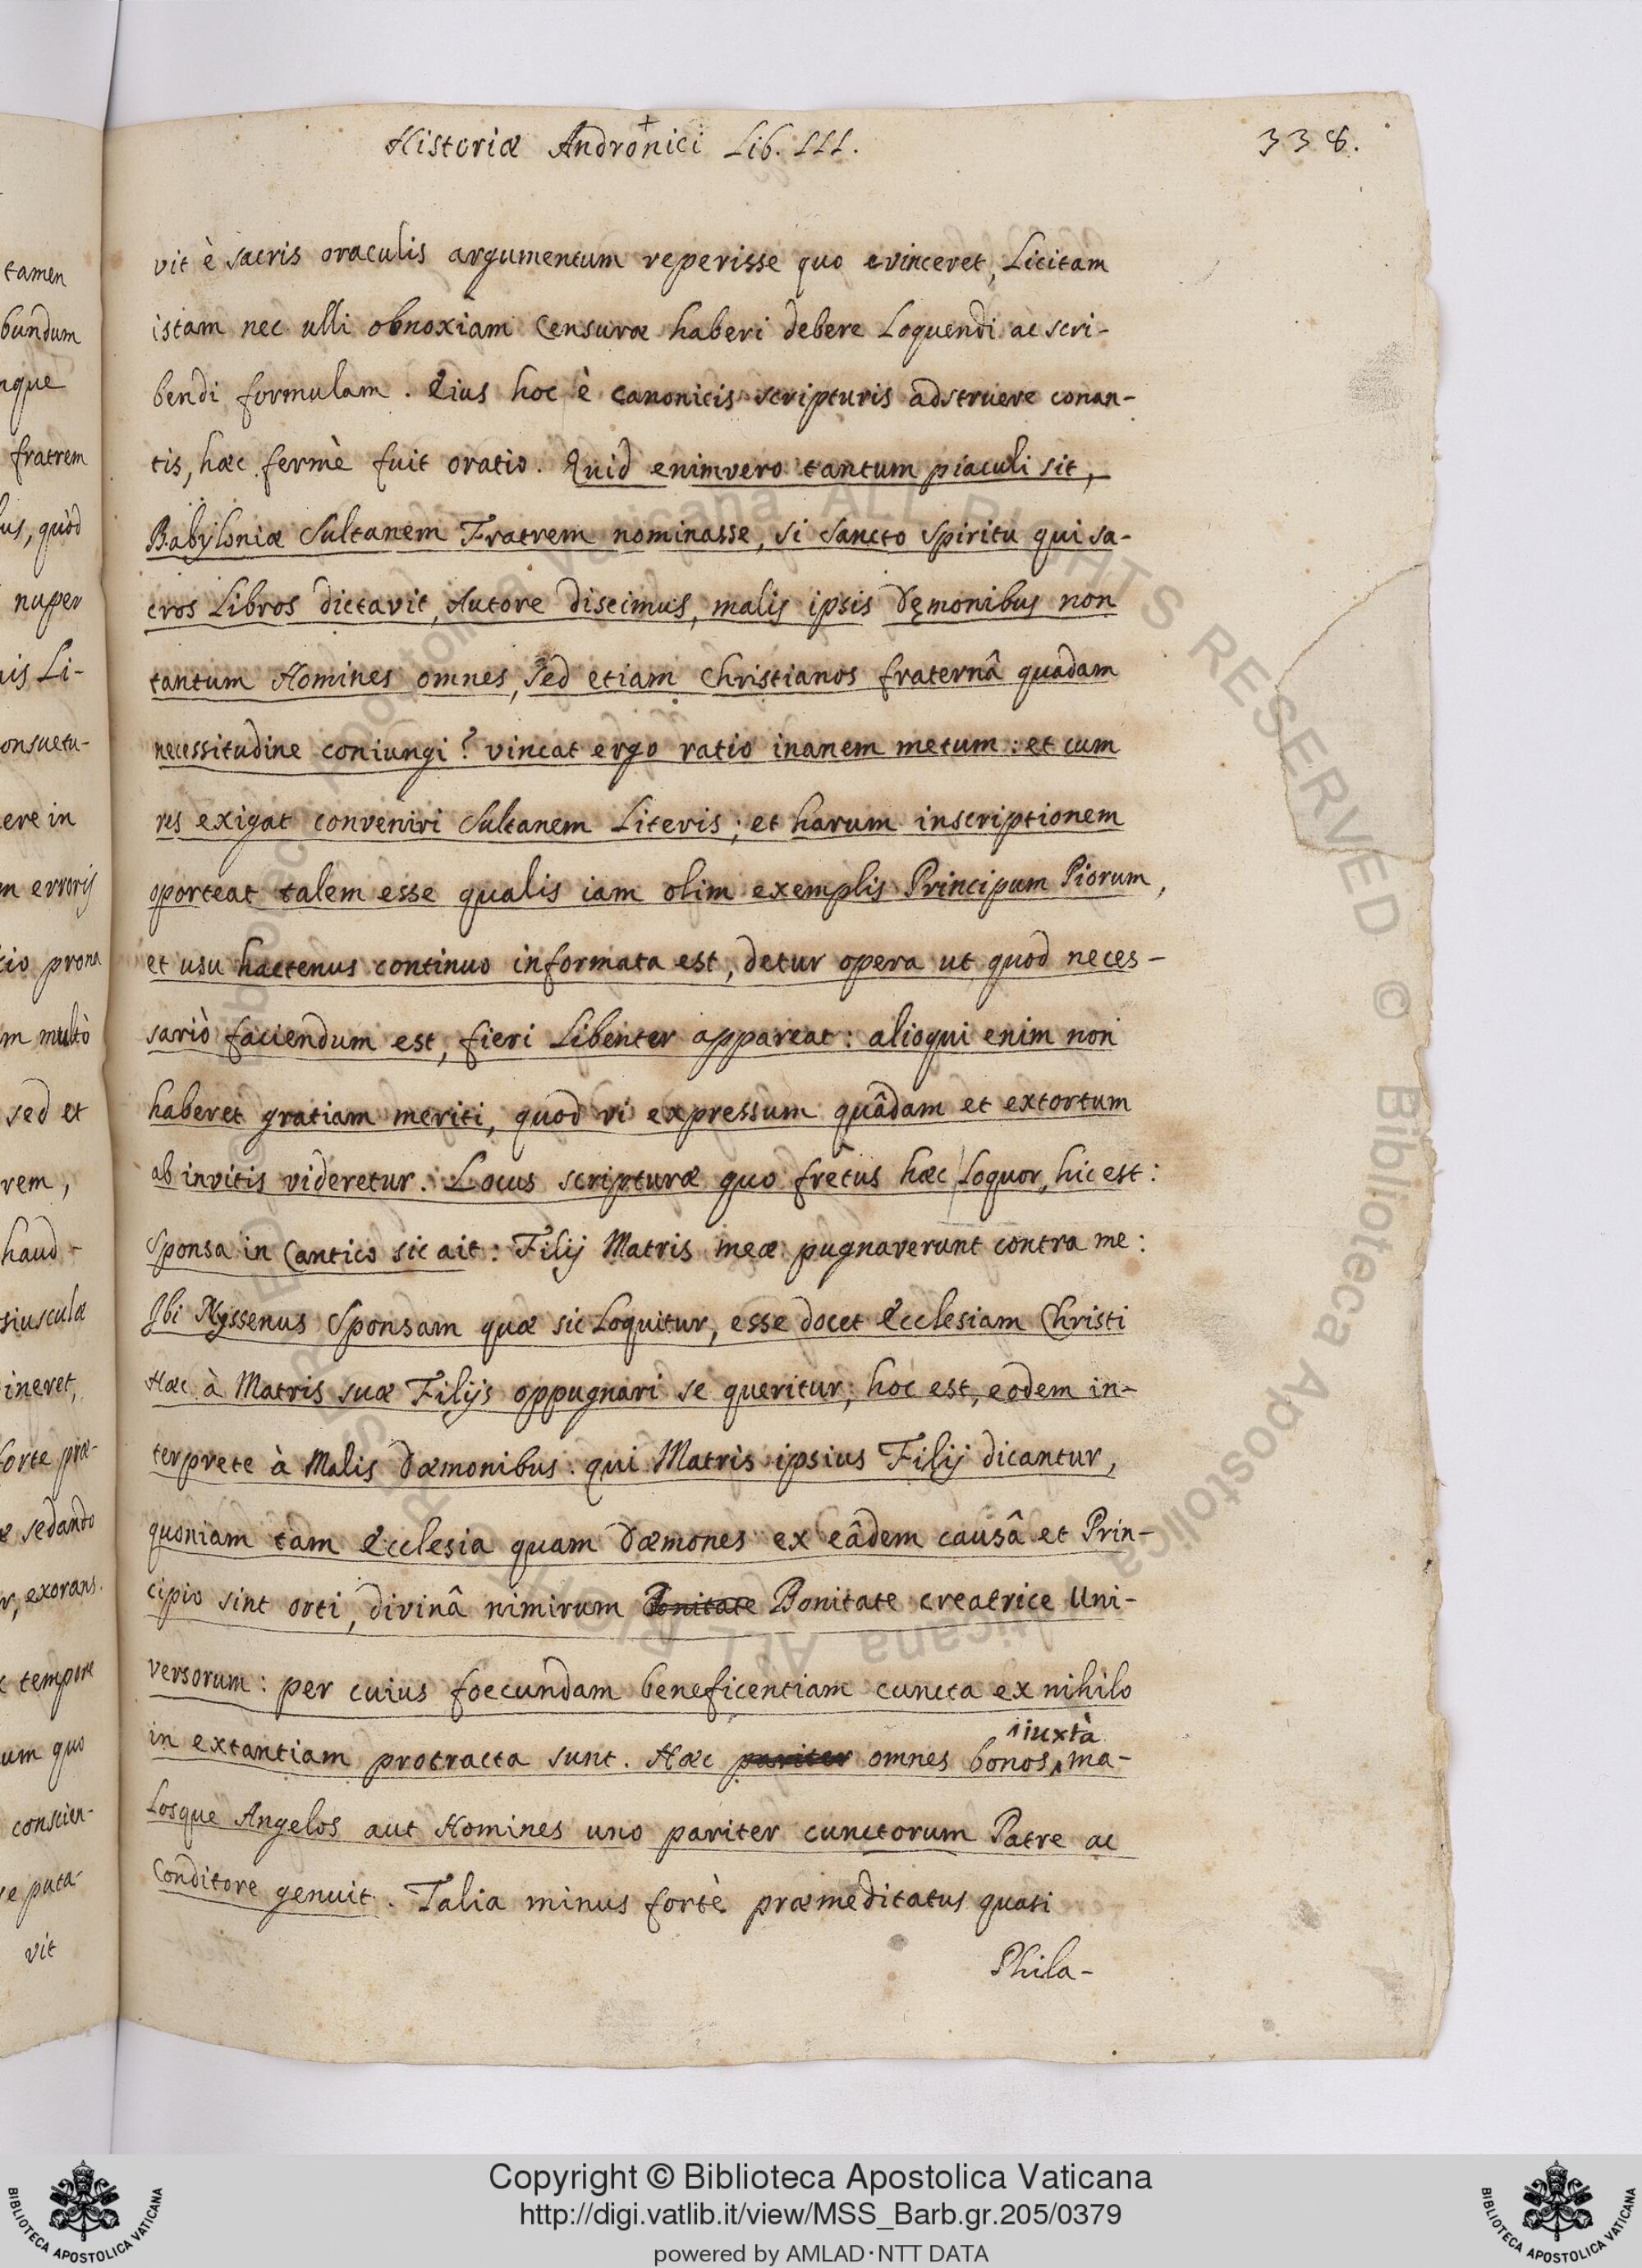 Historiæ Andronici Lib. III.
338.
vit è sacris oraculis argumentum reperisse quo evinceret, Licitam
istam nec ulli obnoxiam Censuræ haberi debere Loquendi ac scri-
bendi formulam. Eius hoc è canonicis scripturis adstruere conan-
tis, hæc fermè fuit oratio. Quid enimvero tantum piaculi sit,
Babyloniæ Sultanem Fratrem nominasse, si Sancto Spiritu qui sa-
cros Libros dictavit, Autore discimus, malis ipsis Dęmonibus non
tantum Homines omnes, sed etiam Christianos fraternâ quadam
necessitudine coniungi? vincat ergo ratio inanem metum: et cum
res exigat conveniri Sultanem Literis; et harum inscriptionem
oporteat talem esse qualis iam olim exemplis Principum Piorum,
et usu hactenus continuo informata est, detur opera ut quod neces-
sariò faciendum est, fieri Libenter appareat: alioqui enim non
haberet gratiam meriti, quod vi expressum quâdam et extortum
ab invitis videretur. Locus scripturæ quo fretus hæc Loquor, hic est:
Sponsa in Cantico sic ait: Filij Matris meæ pugnaverunt contra me:
Ibi Nyssenus Sponsam quæ sic Loquitur, esse docet Ecclesiam Christi
Hæc à Matris suæ Filijs oppugnari se queritur; hoc est, eodem in-
terprete à Malis Dæmonibus: qui Matris ipsius Filij dicantur,
quoniam tam Ecclesia quam Dæmones ex eâdem causâ et Prin-
cipio sint orti, divinâ nimirum Bonitate Bonitate creatrice Uni-
versorum: per cuius foecundam beneficentiam cuncta ex nihilo
in extantiam protracta sunt. Hæc pariter omnes bonos iuxtà ma-
Losque Angelos aut Homines uno pariter cunctorum Patre ac
Conditore genuit. Talia minus fortè præmeditatus quasi
Phila-
tamen
bundum
nque
fratrem
us, quòd
nuper
is Li-
onsuetu-
ere in
m erroris
io prona
m multò
sed et
rem,
haud-
siusculæ
ineret,
forte præ-
sedando
r, exorans.
tempore
um quo
conscien-
e puta-
vit
© Biblioteca Apostolica Vaticana ALL RIGHTS RESERVED © Biblioteca Apostolica Vaticana ALL RIGHTS RESERVED
Copyright © Biblioteca Apostolica Vaticana
http://digi.vatlib.it/view/MSS_Barb.gr.205/0379
powered by AMLAD·NTT DATA
BIBLIOTECA APOSTOLICA VATICANA
BIBLIOTECA APOSTOLICA VATICANA